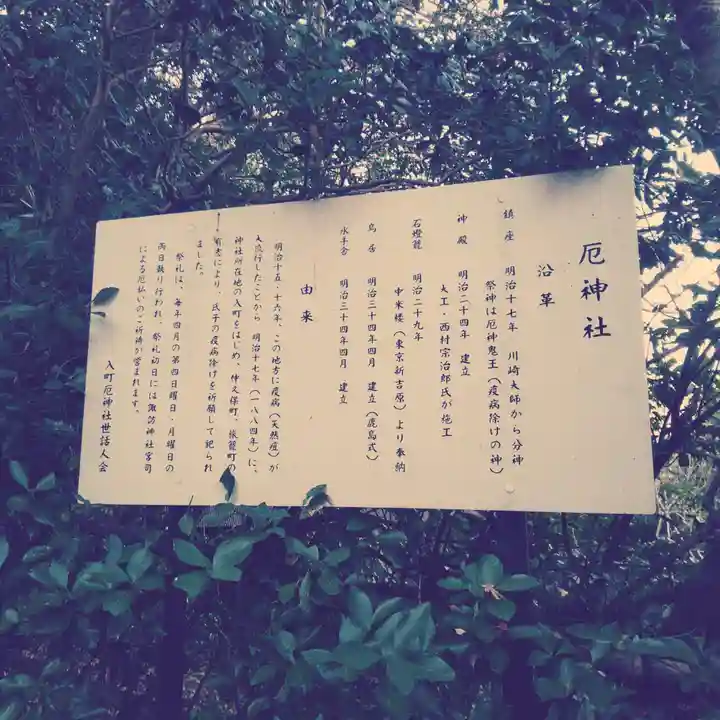 厄神社
沿革
鎮座 明治十七年 川崎大師から分神
祭神は厄神鬼王(疫病除けの神)
神殿 明治二十四年 建立
大工・西村宗治郎氏が施工
石燈籠 明治二十九年
中米楼(東京新吉原)より奉納
鳥居 明治三十四年四月 建立(鹿島式)
水手舎 明治三十四年四月 建立
由来
明治十五・十六年、この地方に疫病(天然痘)が
大流行したことから 明治十七年(一八八四年)に、
神社所在地の入町をはじめ、仲久保町、根籠町の
有志により、氏子の疫病除けを祈願して祀られ
ました。
祭礼は、毎年四月の第四日曜日・月曜日の
両日執り行われ、祭礼初日には諏訪神社宮司
による厄払いのご祈祷が営まれます。
入町厄神社世話人会